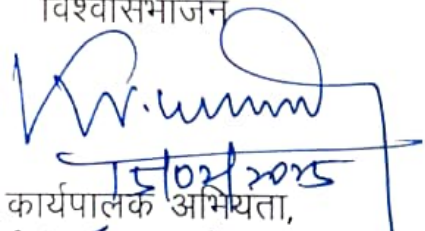 विश्वासभाजन
15/02/2025
कार्यपालक अभियंता,